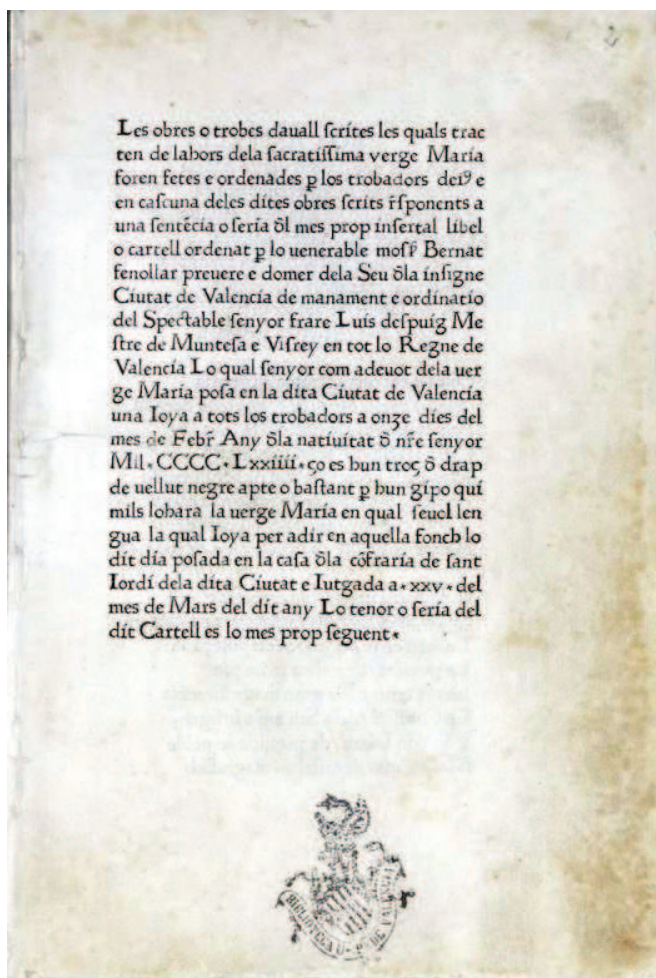 2
Les obres o trobes dauall scrites les quals trac
ten de lahors dela sacratissima verge María
foren fetes e ordenades ꝑ los trobadors deiꝰ e
en cascuna deles dites obres scrits r̃sponents a
una sentẽcía o sería õl mes prop insertat líbel
o cartell ordenat ꝑ lo uenerable mosſr̃ Bernat
fenollar preuere e domer dela Seu õla ínsigne
Ciutat de Valencía de manament e ordinatio
del Spectable senyor frare Luís despuig Me
stre de Muntesa e Visrey en tot lo Regne de
Valencía Lo qual senyor com adeuot dela uer
ge María posa en la dita Ciutat de Valencía
una Ioya a tots los trobadors a onze díes del
mes de Febr̃ Any õla natiuitat õ nr̃e senyor
Mil. CCCC. Lxxiiii. ço es hun troç õ drap
de uellut negre apte o bastant ꝑ hun gípo quí
mils lohara la uerge María en qual seuol len
gua la qual Ioya per adir en aquella fonch lo
dit día posada en la casa õla cõfraría de sant
Iordí dela dita Ciutat e Iutgada a. xxv. del
mes de Mars del dit any Lo tenor o sería del
dit Cartell es lo mes prop seguent.
BIBLIOTECA U. P. DE VALENCIA